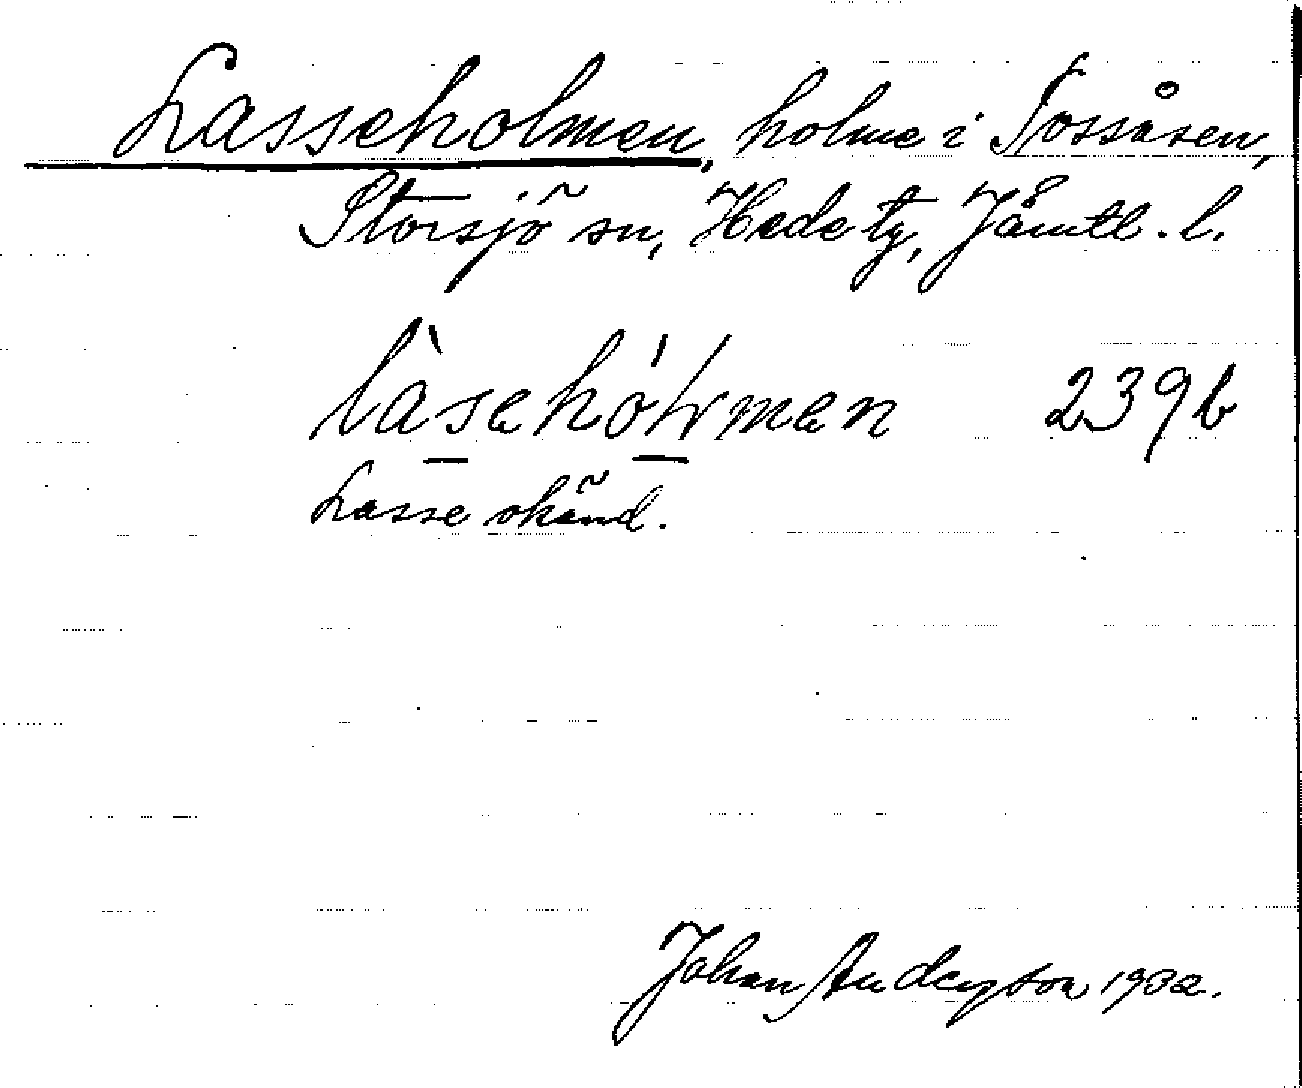 Lasseholmen, holme i Tossåsen,
Storsjö sn, Hede tg, Jämtl. l.
làsehólmen 239b
Lasse okänd.
Johan Anderson 1932.